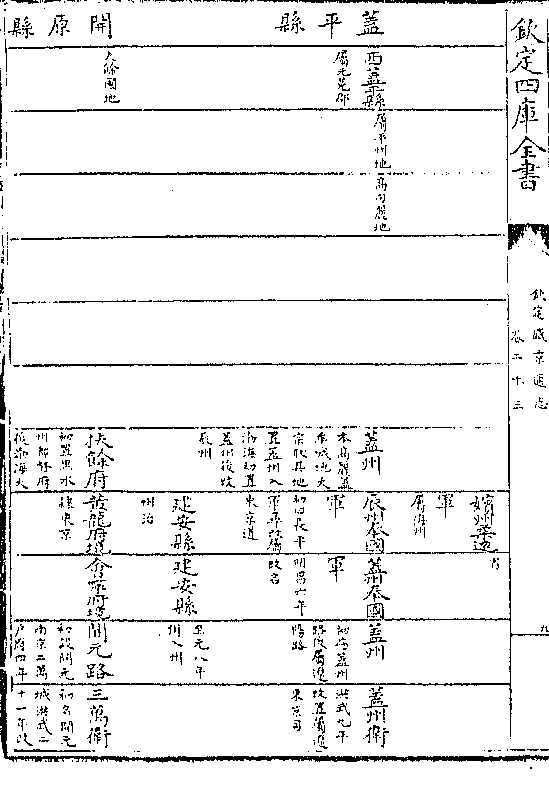 欽定四庫全書
欽定盛京通志
卷二十三
九
蓋平縣
開原縣
西蓋縣
屬元菟郡
屬平州地
高句麗地
大餘國地
蓋州
本高麗蓋
牟城地大
宗收其地
置蓋州入
渤海初置
蓋州後改
辰州
扶餘府
初置黑水
州都督府
後渤海大
嬪州柔遠
軍
屬海州
辰州奉國
軍
初曰長平
軍尋改屬
東京道
建安縣
州治
黃龍府
隸東京
蓋州奉國
軍
明昌六年
改名
建安縣
會寧府
蓋州
初為蓋州
路後屬遼
陽路
至元八年
州入州
開元路
初設開元
南京二萬
戶府四年
蓋州衛
洪武九年
改置屬遼
東京司
三萬衛
初名開元
城洪武二
十一年改